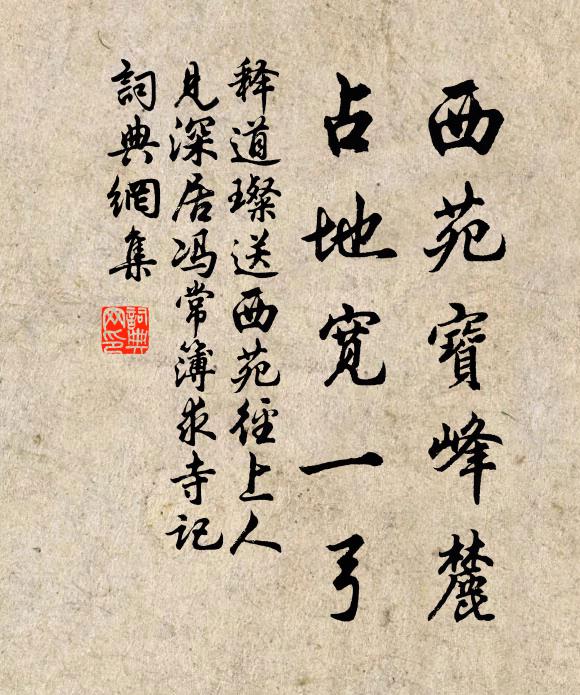 西苑寶峰麓
占地宽一弓
释道璨送西苑径上人
见深居冯常簿求寺记
詞典網集
詞典網印